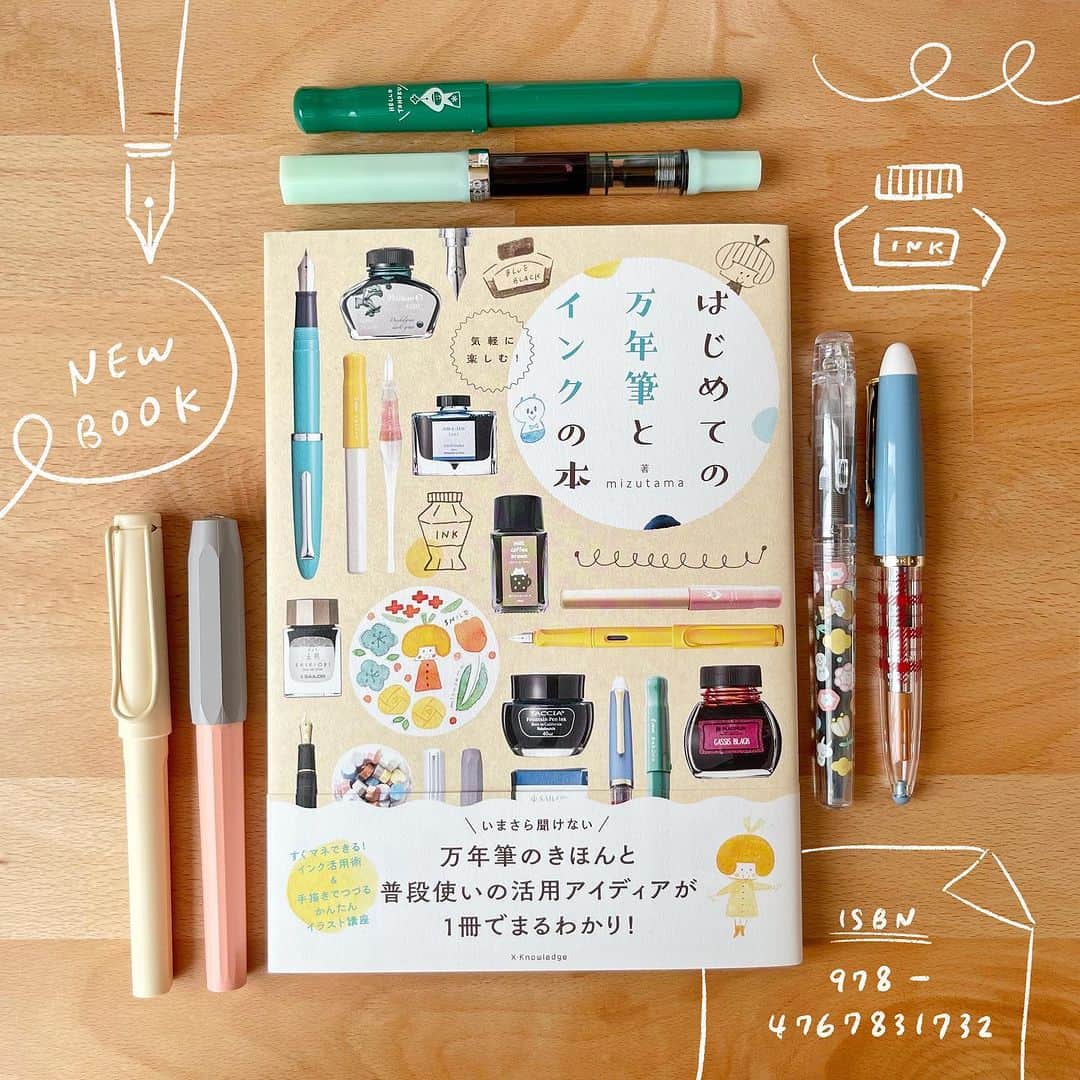 HELLO
NEW
BOOK
INK
BLUE
BLACK
気軽に
楽しむ!
はじめての
万年筆と
インクの本
著
mizutama
INK
SMILE
mizutama
SHIKIORI
SAILOR
TACCIA
Fountain Pen Ink
40ml
CASSIS BLACK
SAILOR
いまさら聞けない
万年筆のきほんと
普段使いの活用アイディアが
1冊でまるわかり!
すぐマネできる!
インク活用術
&
手描きでつづる
かんたん
イラスト講座
X-Knowledge
ISBN
978-
4767831732